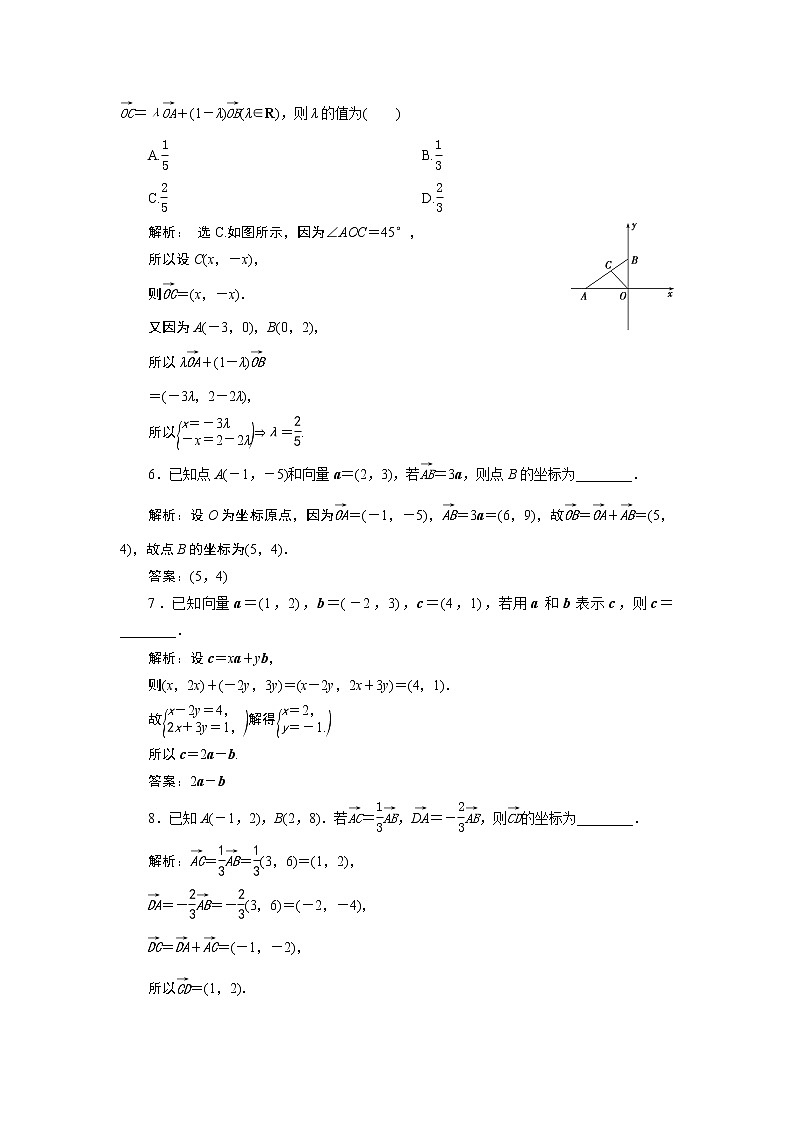 OC→=λOA→+(1-λ)OB→(λ∈R),则λ的值为(　　)
A.1/5　B.1/3
C.2/5　D.2/3
解析： 选C.如图所示，因为∠AOC=45°，
所以设C(x，-x)，
则OC→=(x，-x).
又因为A(-3，0)，B(0，2)，
所以λOA→+(1-λ)OB→
=(-3λ，2-2λ)，
所以{x=-3λ
-x=2-2λ}⇒λ=2/5.
y
B
C
A O x
6．已知点A(-1，-5)和向量a=(2，3)，若AB→=3a，则点B的坐标为________．
解析：设O为坐标原点，因为OA→=(-1，-5)，AB→=3a=(6，9)，故OB→=OA→+AB→=(5，
4)，故点B的坐标为(5，4)．
答案：(5，4)
7．已知向量a=(1，2)，b=(-2，3)，c=(4，1)，若用a和b表示c，则c=
________．
解析：设c=xa+yb，
则(x，2x)+(-2y，3y)=(x-2y，2x+3y)=(4，1)．
故{x-2y=4，
2x+3y=1，}解得{x=2，
y=-1.}
所以c=2a-b.
答案：2a-b
8．已知A(-1，2)，B(2，8)．若AC→=1/3AB→，DA→=-2/3AB→，则CD→的坐标为________．
解析：AC→=1/3AB→=1/3(3，6)=(1，2)，
DA→=-2/3AB→=-2/3(3，6)=(-2，-4)，
DC→=DA→+AC→=(-1，-2)，
所以CD→=(1，2)．